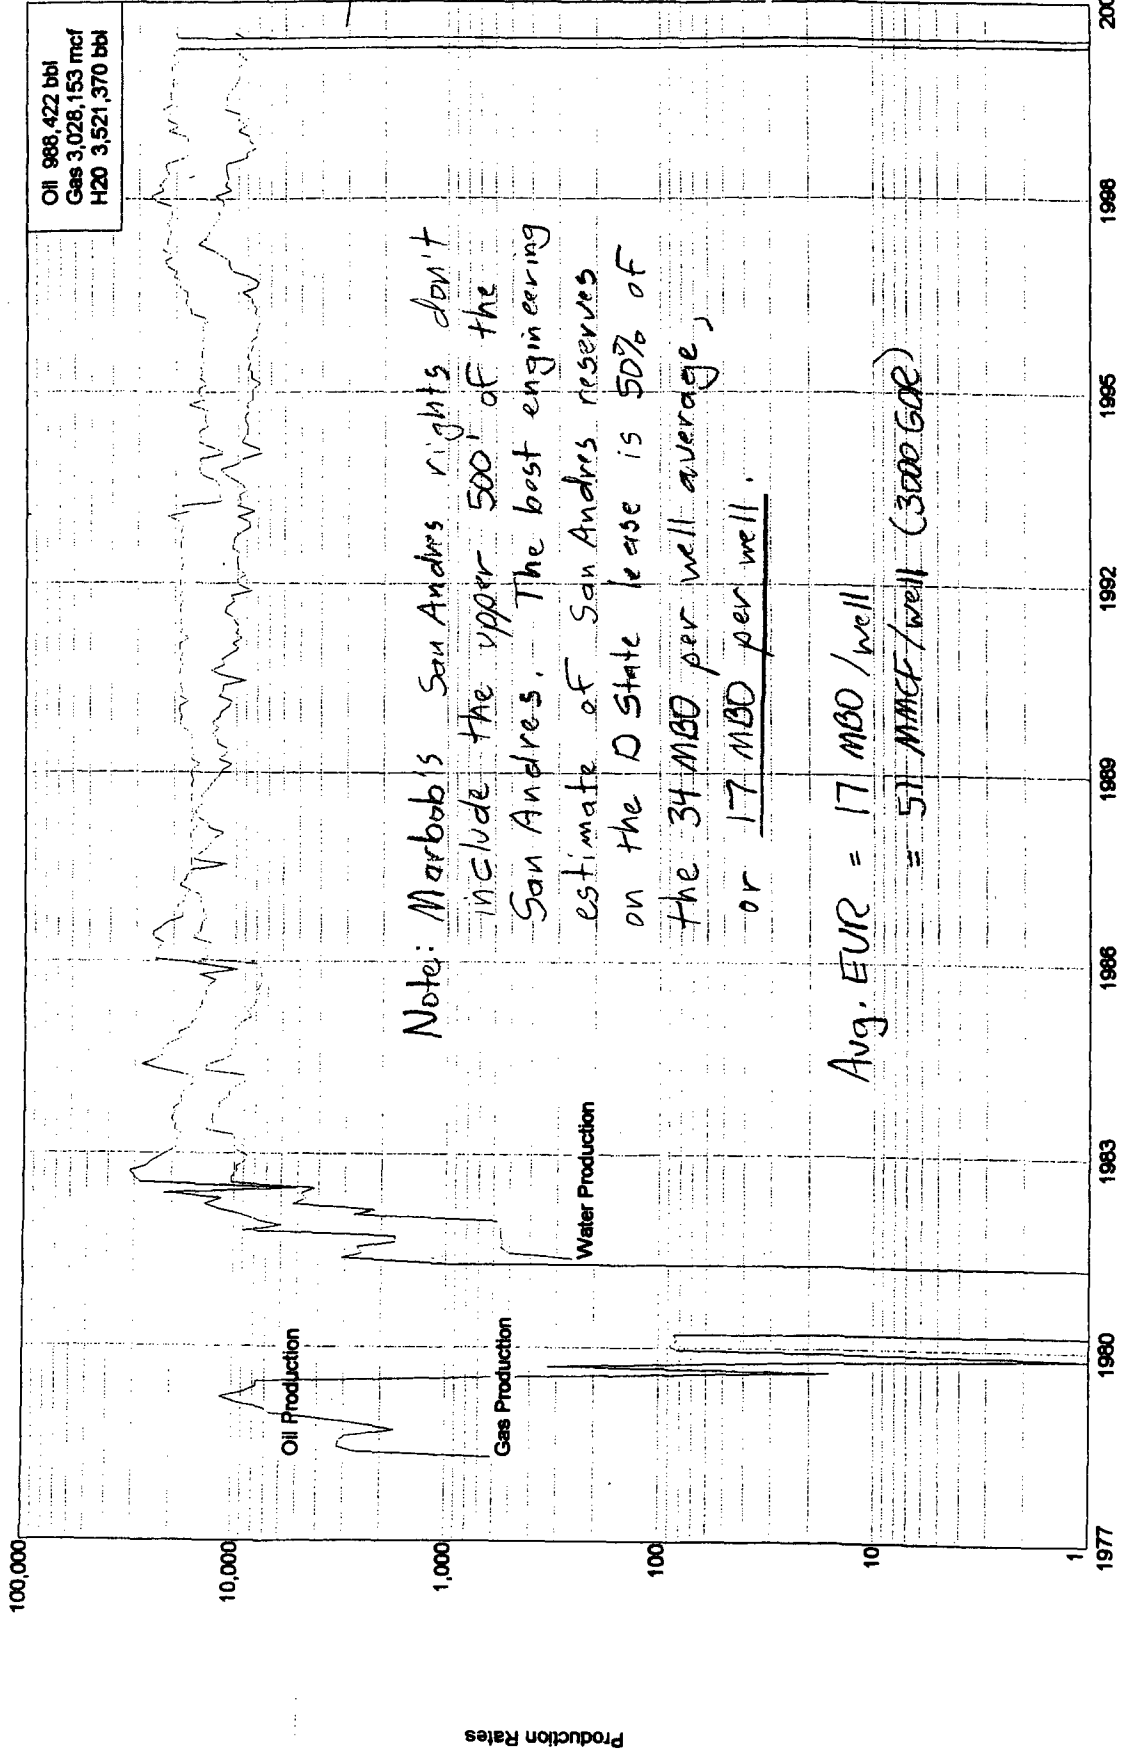 Oil 988,422 bbl
Gas 3,028,153 mcf
H20 3,521,370 bbl
Production Rates
100,000
10,000
1,000
100
10
1
Oil Production
Gas Production
Water Production
Note: Marbob's San Andres rights don't
include the upper 500' of the
San Andres. The best engineering
estimate of San Andres reserves
on the D State lease is 50% of
the 34 MBO per well average,
or 17 MBO per well.
Avg. EUR = 17 MBO/well
= 51 MMCF/well (3000 GOR)
1977
1980
1983
1986
1989
1992
1995
1998